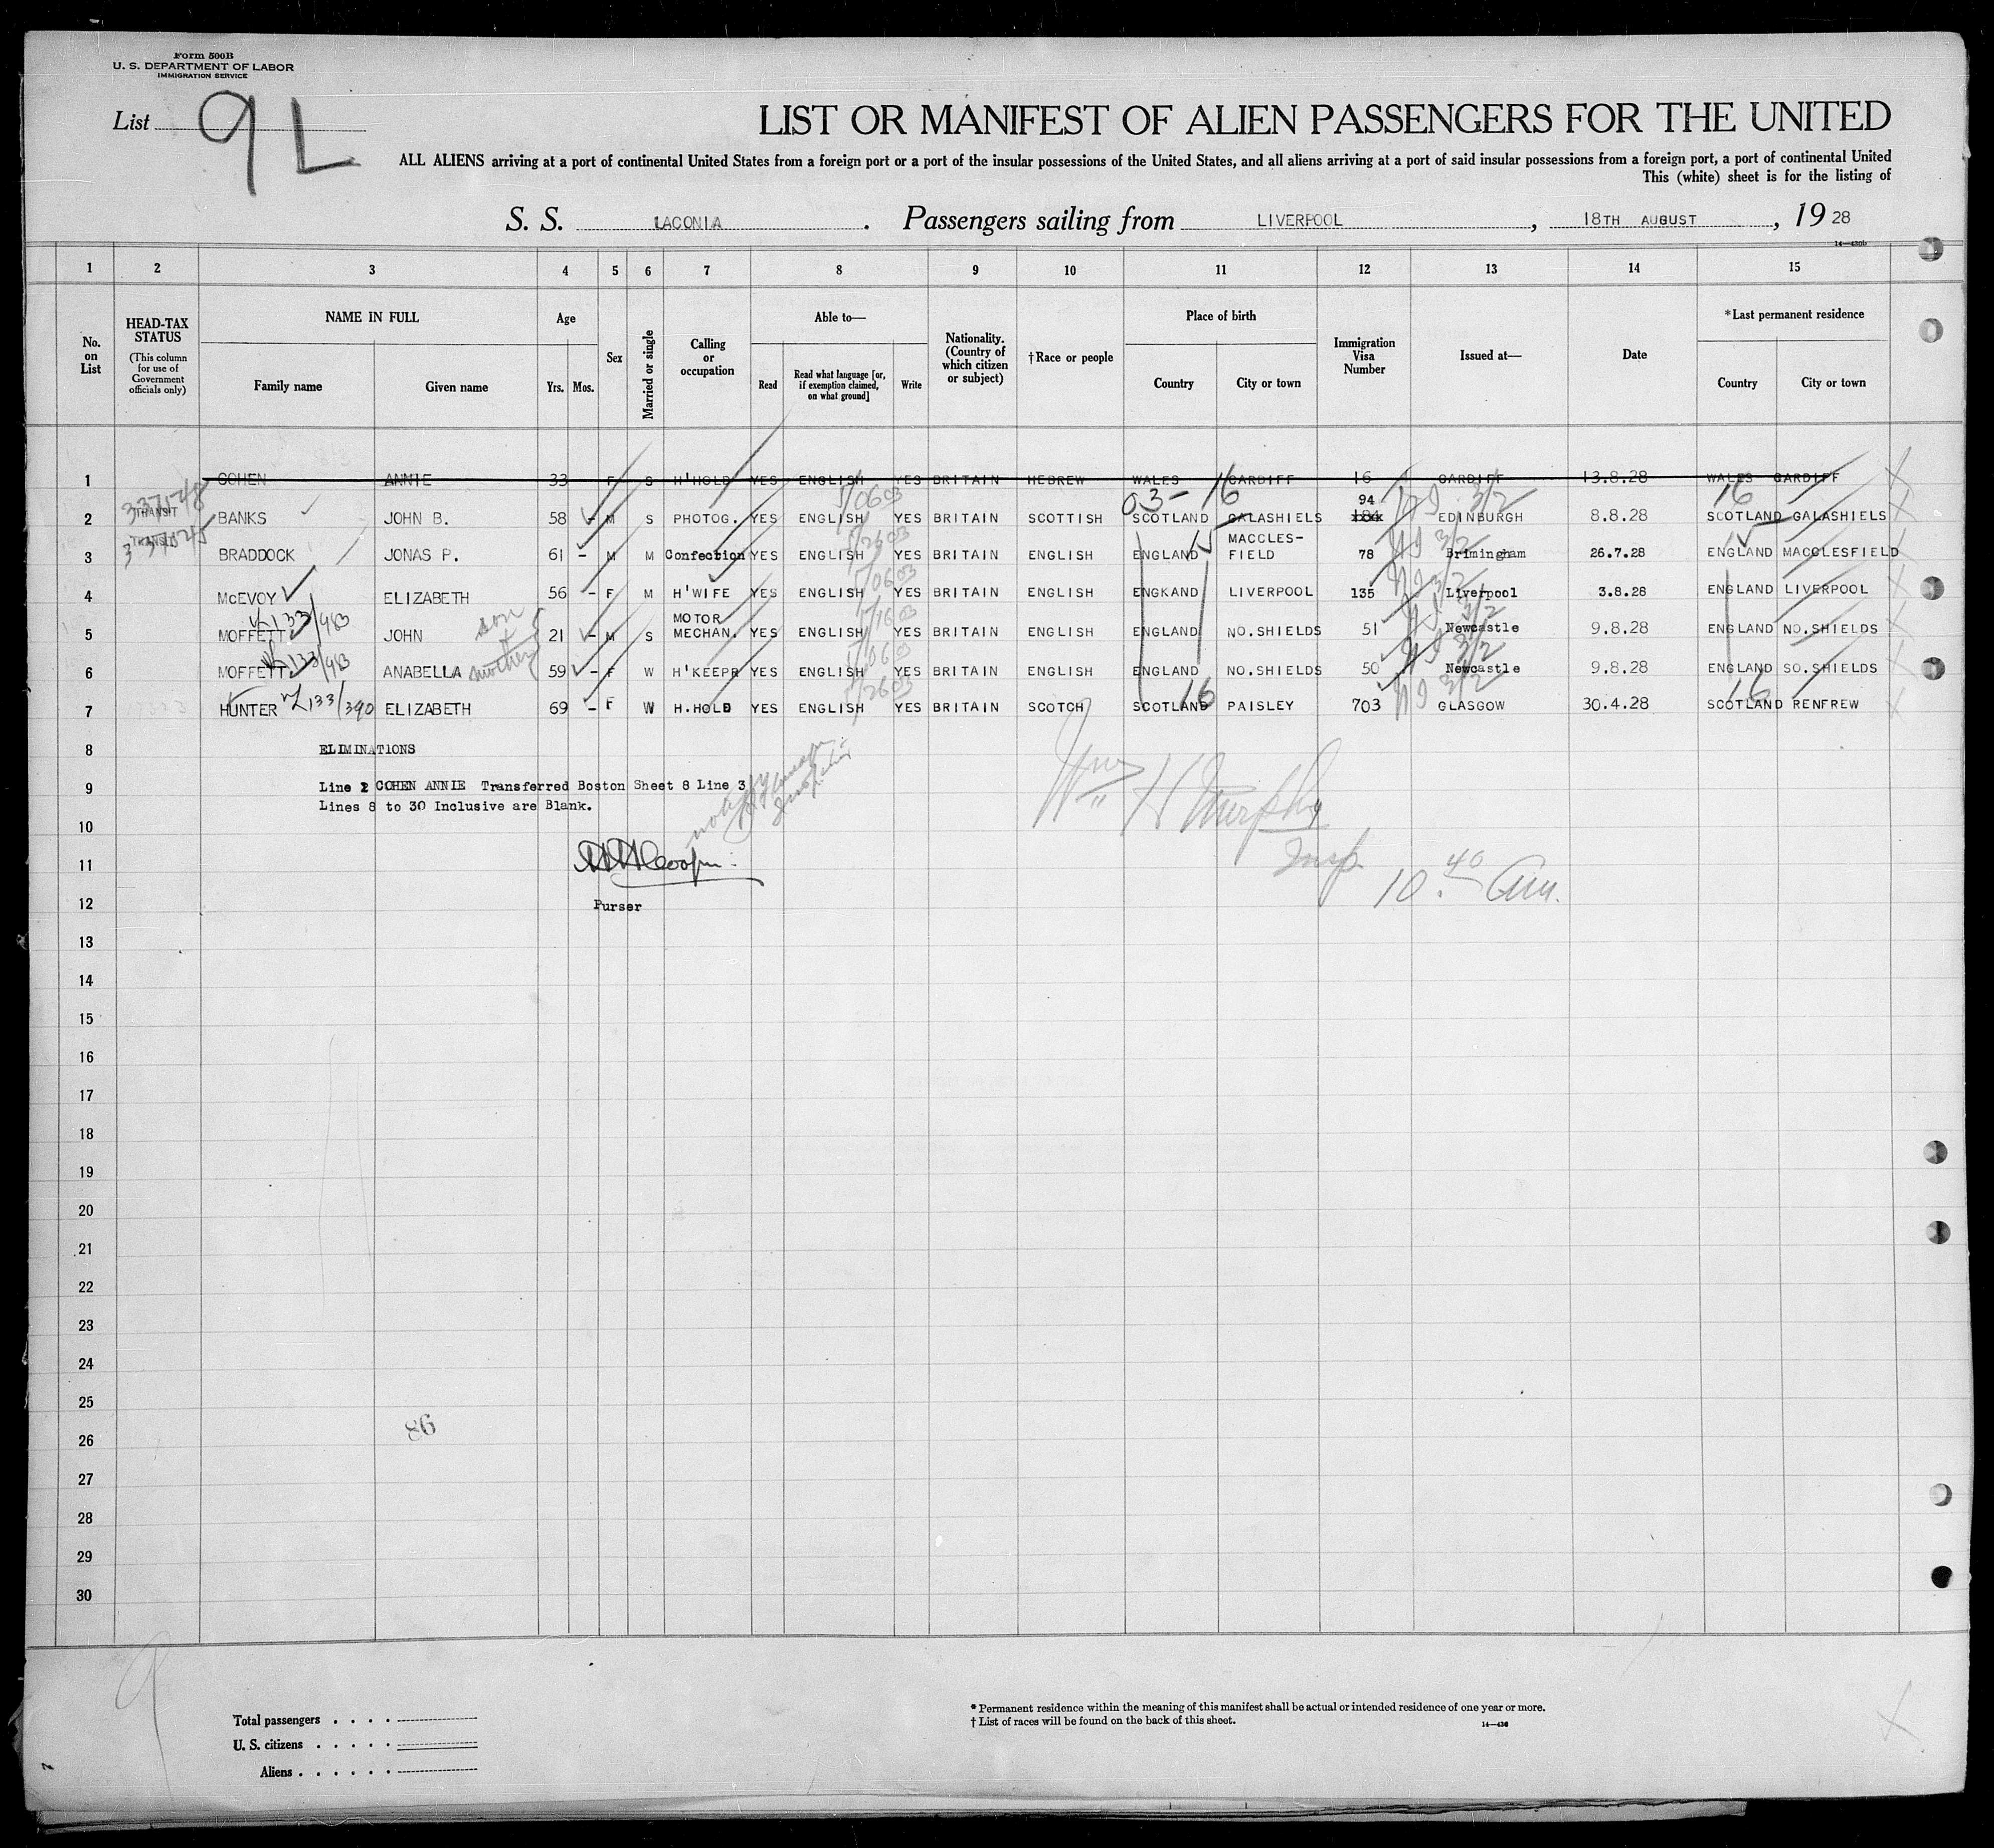 Form 500B
U. S. DEPARTMENT OF LABOR
IMMIGRATION SERVICE
List 9 L
LIST OR MANIFEST OF ALIEN PASSENGERS FOR THE UNITED
ALL ALIENS arriving at a port of continental United States from a foreign port or a port of the insular possessions of the United States, and all aliens arriving at a port of said insular possessions from a foreign port, a port of continental United
This (white) sheet is for the listing of
S. S. LACONIA . Passengers sailing from LIVERPOOL , 18TH AUGUST , 19 28
14—430b
1 2 3 4 5 6 7 8 9 10 11 12 13 14 15
No. on List
HEAD-TAX STATUS (This column for use of Government officials only)
NAME IN FULL
Family name Given name
Age
Yrs. Mos.
Sex
Married or single
Calling or occupation
Able to—
Read Read what language [or, if exemption claimed, on what ground] Write
Nationality. (Country of which citizen or subject)
†Race or people
Place of birth
Country City or town
Immigration Visa Number
Issued at—
Date
*Last permanent residence
Country City or town
1 COHEN ANNIE 33 F S H'HOLD YES ENGLISH YES BRITAIN HEBREW WALES CARDIFF 16 CARDIFF 13.8.28 WALES CARDIFF
03- 16 16
337548
2 TRANSIT BANKS JOHN B. 58 - M S PHOTOG. YES ENGLISH YES BRITAIN SCOTTISH SCOTLAND GALASHIELS 94 EDINBURGH 8.8.28 SCOTLAND GALASHIELS
3 TRANSIT BRADDOCK JONAS P. 61 - M M Confection YES ENGLISH YES BRITAIN ENGLISH ENGLAND MACCLES-FIELD 78 Brimingham 26.7.28 ENGLAND MACCLESFIELD
4 McEVOY ELIZABETH 56 - F M H'WIFE YES ENGLISH YES BRITAIN ENGLISH ENGKAND LIVERPOOL 135 Liverpool 3.8.28 ENGLAND LIVERPOOL
133/983
5 MOFFETT JOHN son 21 - M S MOTOR MECHAN. YES ENGLISH YES BRITAIN ENGLISH ENGLAND NO.SHIELDS 51 Newcastle 9.8.28 ENGLAND NO.SHIELDS
133/983
6 MOFFETT ANABELLA mother 59 - F W H'KEEPR YES ENGLISH YES BRITAIN ENGLISH ENGLAND NO.SHIELDS 50 Newcastle 9.8.28 ENGLAND SO.SHIELDS
16 16
7 HUNTER 133/390 ELIZABETH 69 - F W H.HOLD YES ENGLISH YES BRITAIN SCOTCH SCOTLAND PAISLEY 703 GLASGOW 30.4.28 SCOTLAND RENFREW
8 ELIMINATIONS
9 Line 1 COHEN ANNIE Transferred Boston Sheet 8 Line 3
Lines 8 to 30 Inclusive are Blank.
Wm H Murphy
Insp. 10.40 Am.
10
11
12 Purser
13
14
15
16
17
18
19
20
21
22
23
24
25
86
26
27
28
29
30
9
Total passengers . . . .
U. S. citizens . . . . .
Aliens . . . . . .
* Permanent residence within the meaning of this manifest shall be actual or intended residence of one year or more.
† List of races will be found on the back of this sheet.
14—430